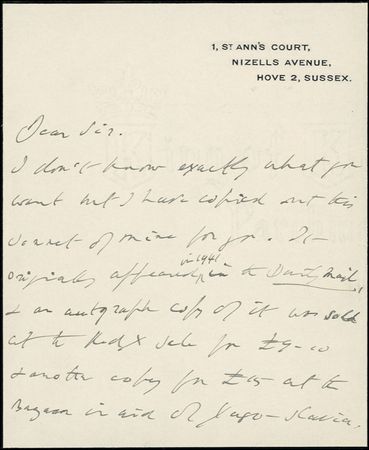 1, ST ANN'S COURT,
NIZELLS AVENUE,
HOVE 2, SUSSEX.
Dear Sir.
I don't know exactly what you
want but I have copied out this
sonnet of mine for you. It
originally appeared in 1941 in the Daily Mail,
& an autograph copy of it was sold
at the Red X Sale for £9-10
& another copy for £15 at the
Bazaar in aid of Jugo-Slavia.